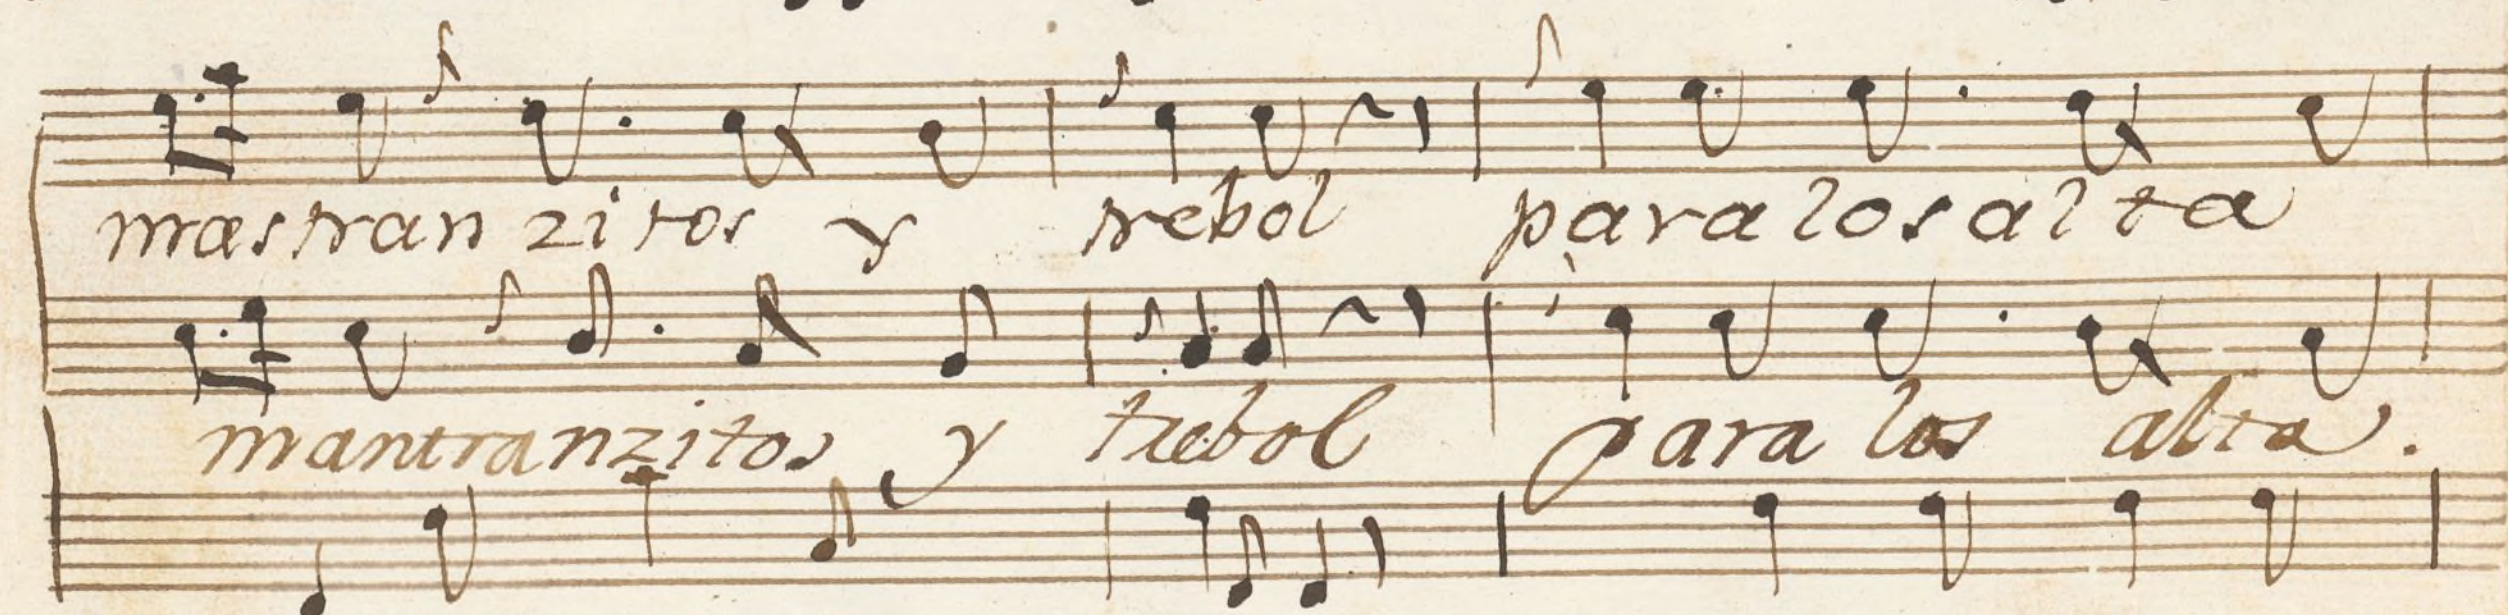 mastranzitos y trebol para los alta
mantranzitos y trebol para los alta.